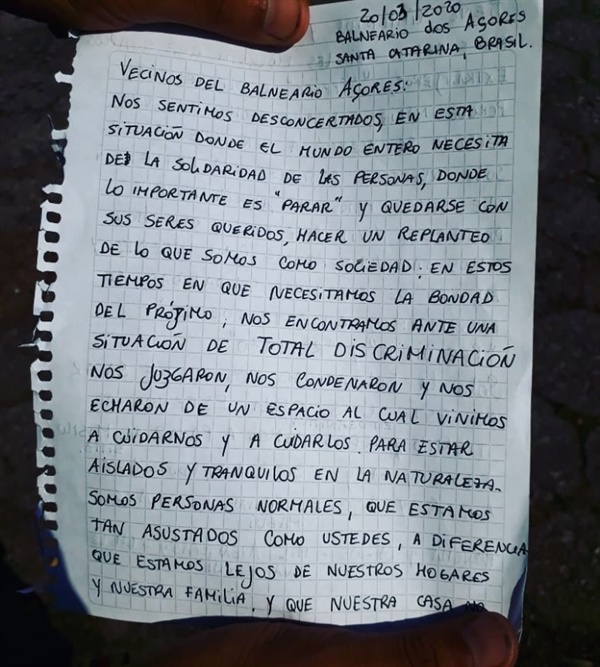 20/03/2020
BALNEARIO DOS AÇORES
SANTA CATARINA, BRASIL.
VECINOS DEL BALNEARIO AÇORES:
NOS SENTIMOS DESCONCERTADOS, EN ESTA
SITUACIÓN DONDE EL MUNDO ENTERO NECESITA
DE LA SOLIDARIDAD DE LAS PERSONAS, DONDE
LO IMPORTANTE ES "PARAR" Y QUEDARSE CON
SUS SERES QUERIDOS, HACER UN REPLANTEO
DE LO QUE SOMOS COMO SOCIEDAD; EN ESTOS
TIEMPOS EN QUE NECESITAMOS LA BONDAD
DEL PRÓJIMO; NOS ENCONTRAMOS ANTE UNA
SITUACIÓN DE TOTAL DISCRIMINACIÓN
NOS JUZGARON, NOS CONDENARON Y NOS
ECHARON DE UN ESPACIO AL CUAL VINIMOS
A CUIDARNOS Y A CUIDARLOS. PARA ESTAR
AISLADOS Y TRANQUILOS EN LA NATURALEZA.
SOMOS PERSONAS NORMALES, QUE ESTAMOS
TAN ASUSTADOS COMO USTEDES, A DIFERENCIA
QUE ESTAMOS LEJOS DE NUESTROS HOGARES
Y NUESTRA FAMILIA, Y QUE NUESTRA CASA NO